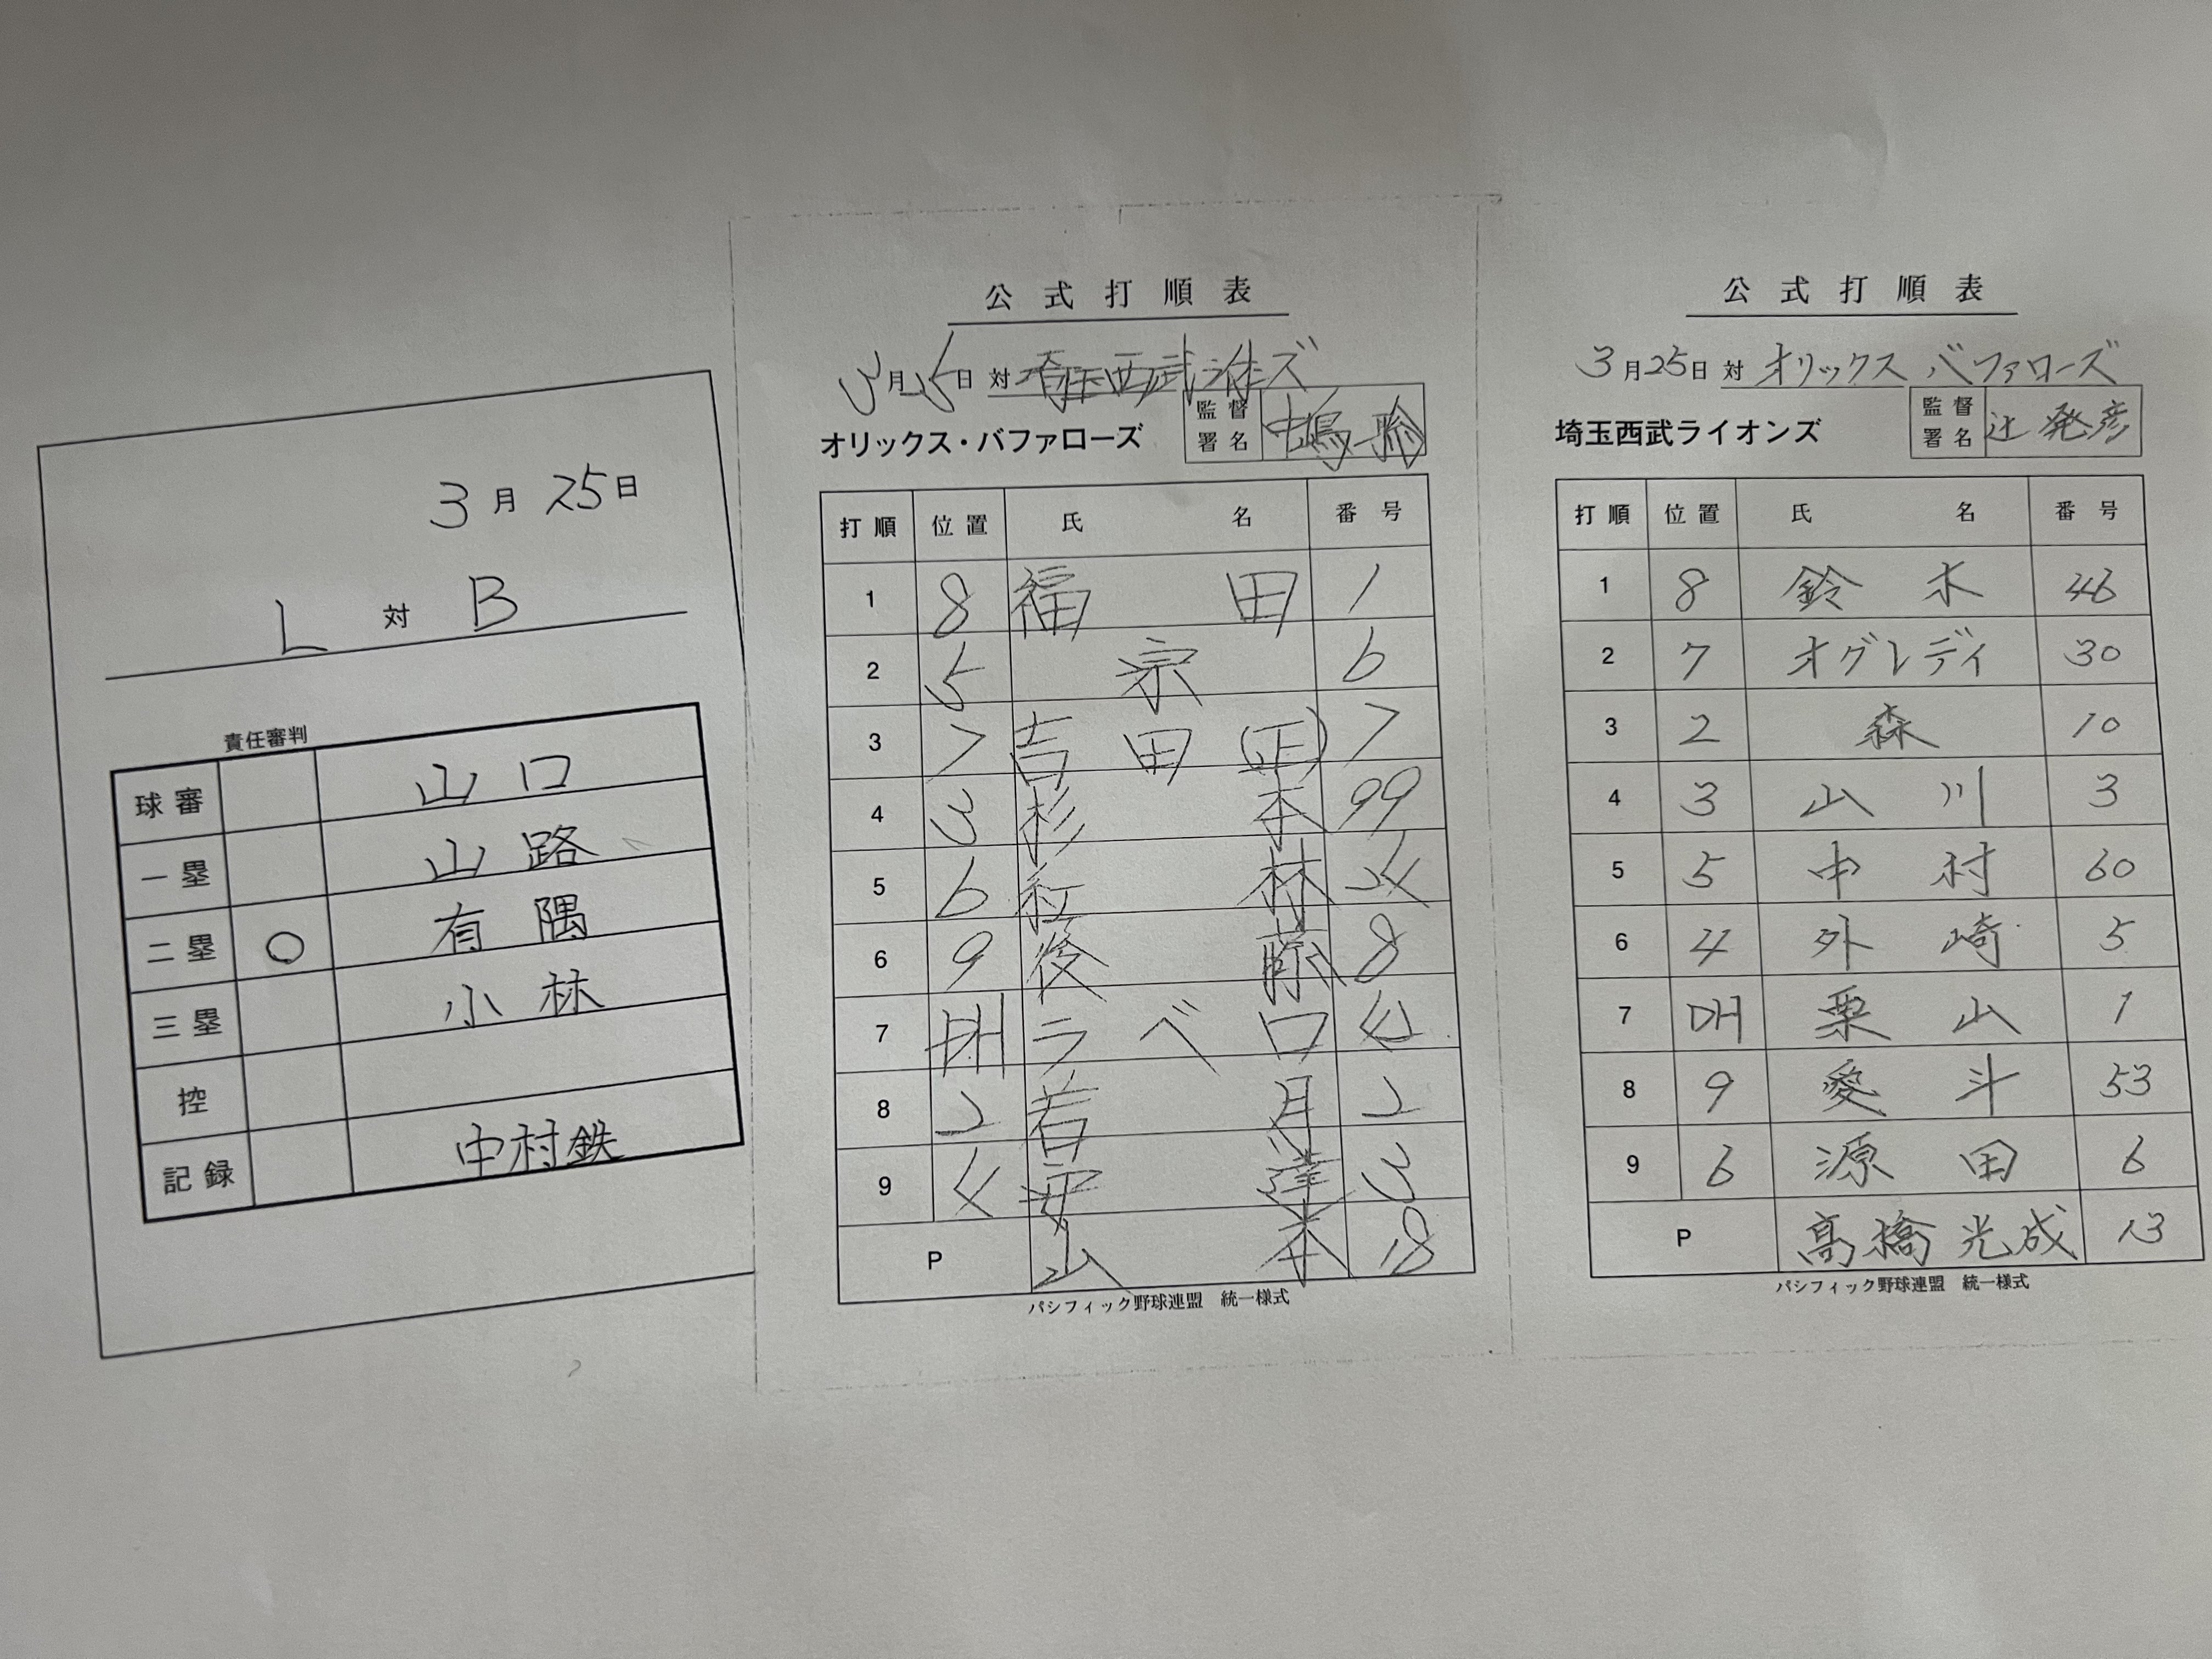 3月25日
L 対 B
責任審判
球審 山口
一塁 山路
二塁 ○ 有隅
三塁 小林
控
記録 中村鉄
公式打順表
3月25日 対 埼玉西武ライオンズ
オリックス・バファローズ 監督署名 中嶋聡
打順 位置 氏名 番号
1 8 福田 1
2 5 宗 6
3 7 吉田(正) 7
4 3 杉本 99
5 6 紅林 24
6 9 後藤 8
7 DH ラベロ 42
8 2 若月 2
9 4 安達 3
P 山本 18
パシフィック野球連盟 統一様式
公式打順表
3月25日 対 オリックスバファローズ
埼玉西武ライオンズ 監督署名 辻発彦
打順 位置 氏名 番号
1 8 鈴木 46
2 7 オグレディ 30
3 2 森 10
4 3 山川 3
5 5 中村 60
6 4 外崎 5
7 DH 栗山 1
8 9 愛斗 53
9 6 源田 6
P 髙橋光成 13
パシフィック野球連盟 統一様式